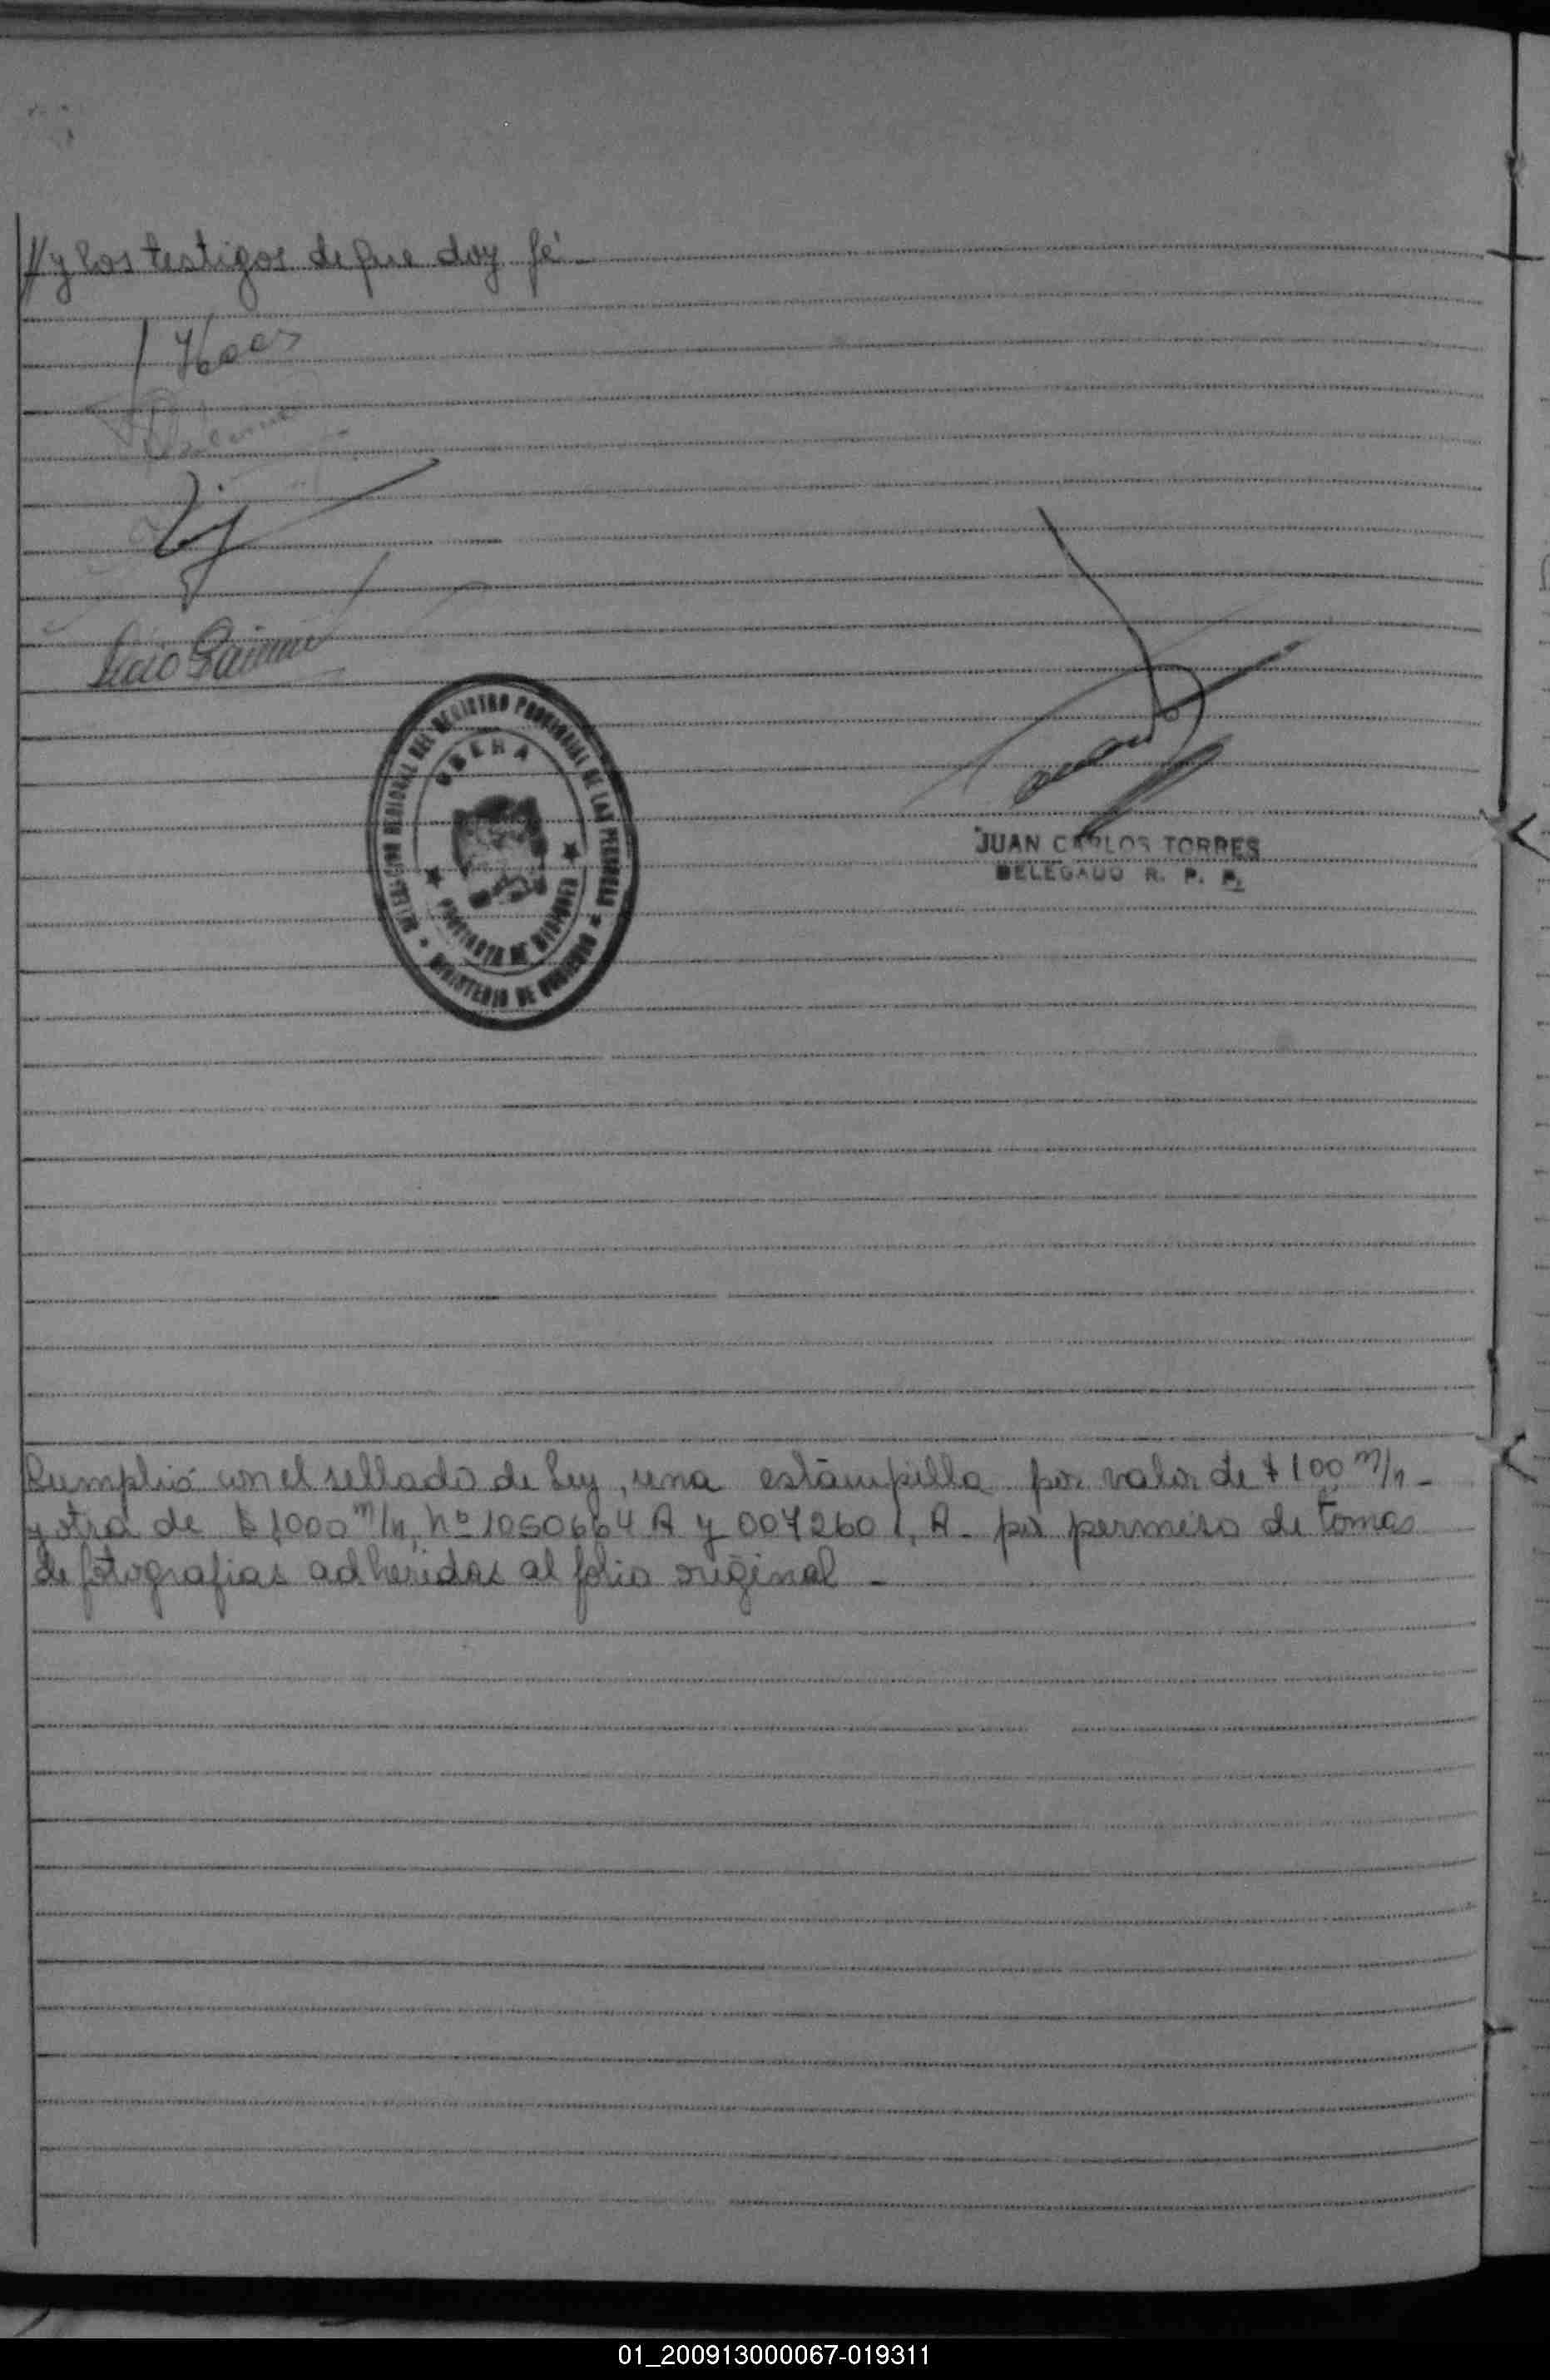 // y los testigos de que doy fé.-
Haas
Lucio
DELEGACION REGIONAL DEL REGISTRO PROVINCIAL DE LAS PERSONAS
OBERA
PROVINCIA DE MISIONES
MINISTERIO DE GOBIERNO
JUAN CARLOS TORRES
DELEGADO R. P. P.
Cumplió con el sellado de Ley, una estampilla por valor de $ 100 m/n -
y otra de $ 1000 m/n, nº 1050664 A y 0072601, A. por permiso de tomas
de fotografias adheridas al folio original -
01_200913000067-019311